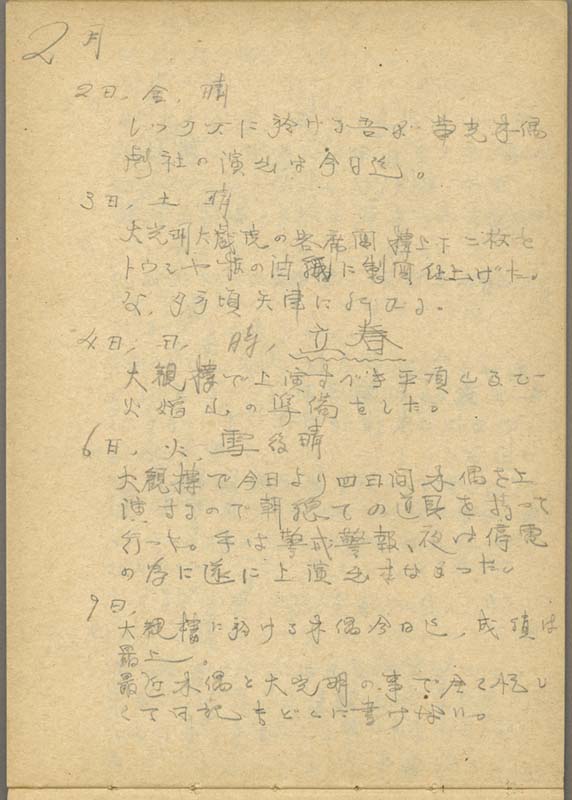 2月
2日，金，晴
レックスに於ける吾が華光木偶
劇社の演出は今日迄。
3日，土 晴
大光明大戯院の客席図 樓上下二枚を
トウシャ版の油紙に製図仕上げた。
夕方頃天津に
4日，日，晴，立春
大観樓で上演すべき平頂山
火焔山の準備をした。
6日，火，雪後晴
大観樓で今日より四日間木偶を上
演するので朝総ての道具を持って
行った。は警戒警報、夜は停電
の為に遂に上演出来なかった。
9日，
大観樓に於ける木偶今日迄，成績は
最上。
最近木偶と大光明の事で忙し
くて日記書けない。